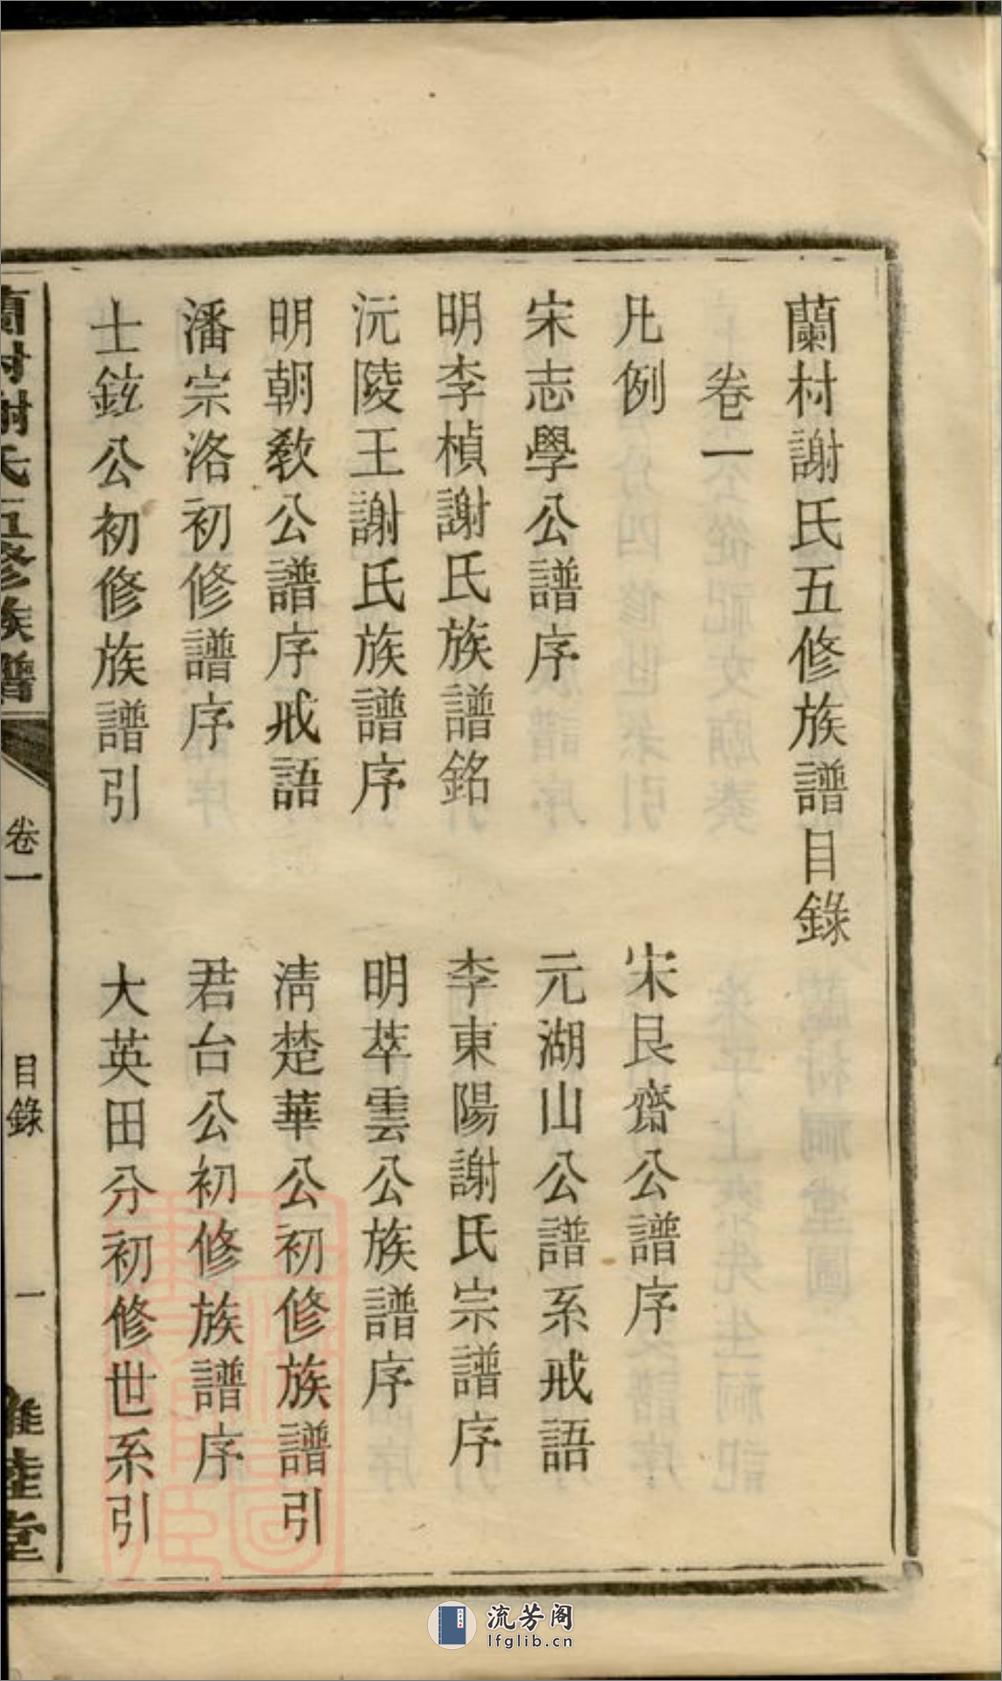 蘭村謝氏五修族譜目錄
卷一
凡例
宋艮齋公譜序
宋志學公譜序
元湖山公譜系戒語
明李楨謝氏族譜銘
李東陽謝氏宗譜序
沅陵王謝氏族譜序
明萃雲公族譜序
明朝敎公譜序戒語
淸楚華公初修族譜引
潘宗洛初修譜序
君台公初修族譜序
士鉉公初修族譜引
大英田分初修世系引
蘭村謝氏五修族譜
卷一
目錄
一
流芳阁
lfglib.cn